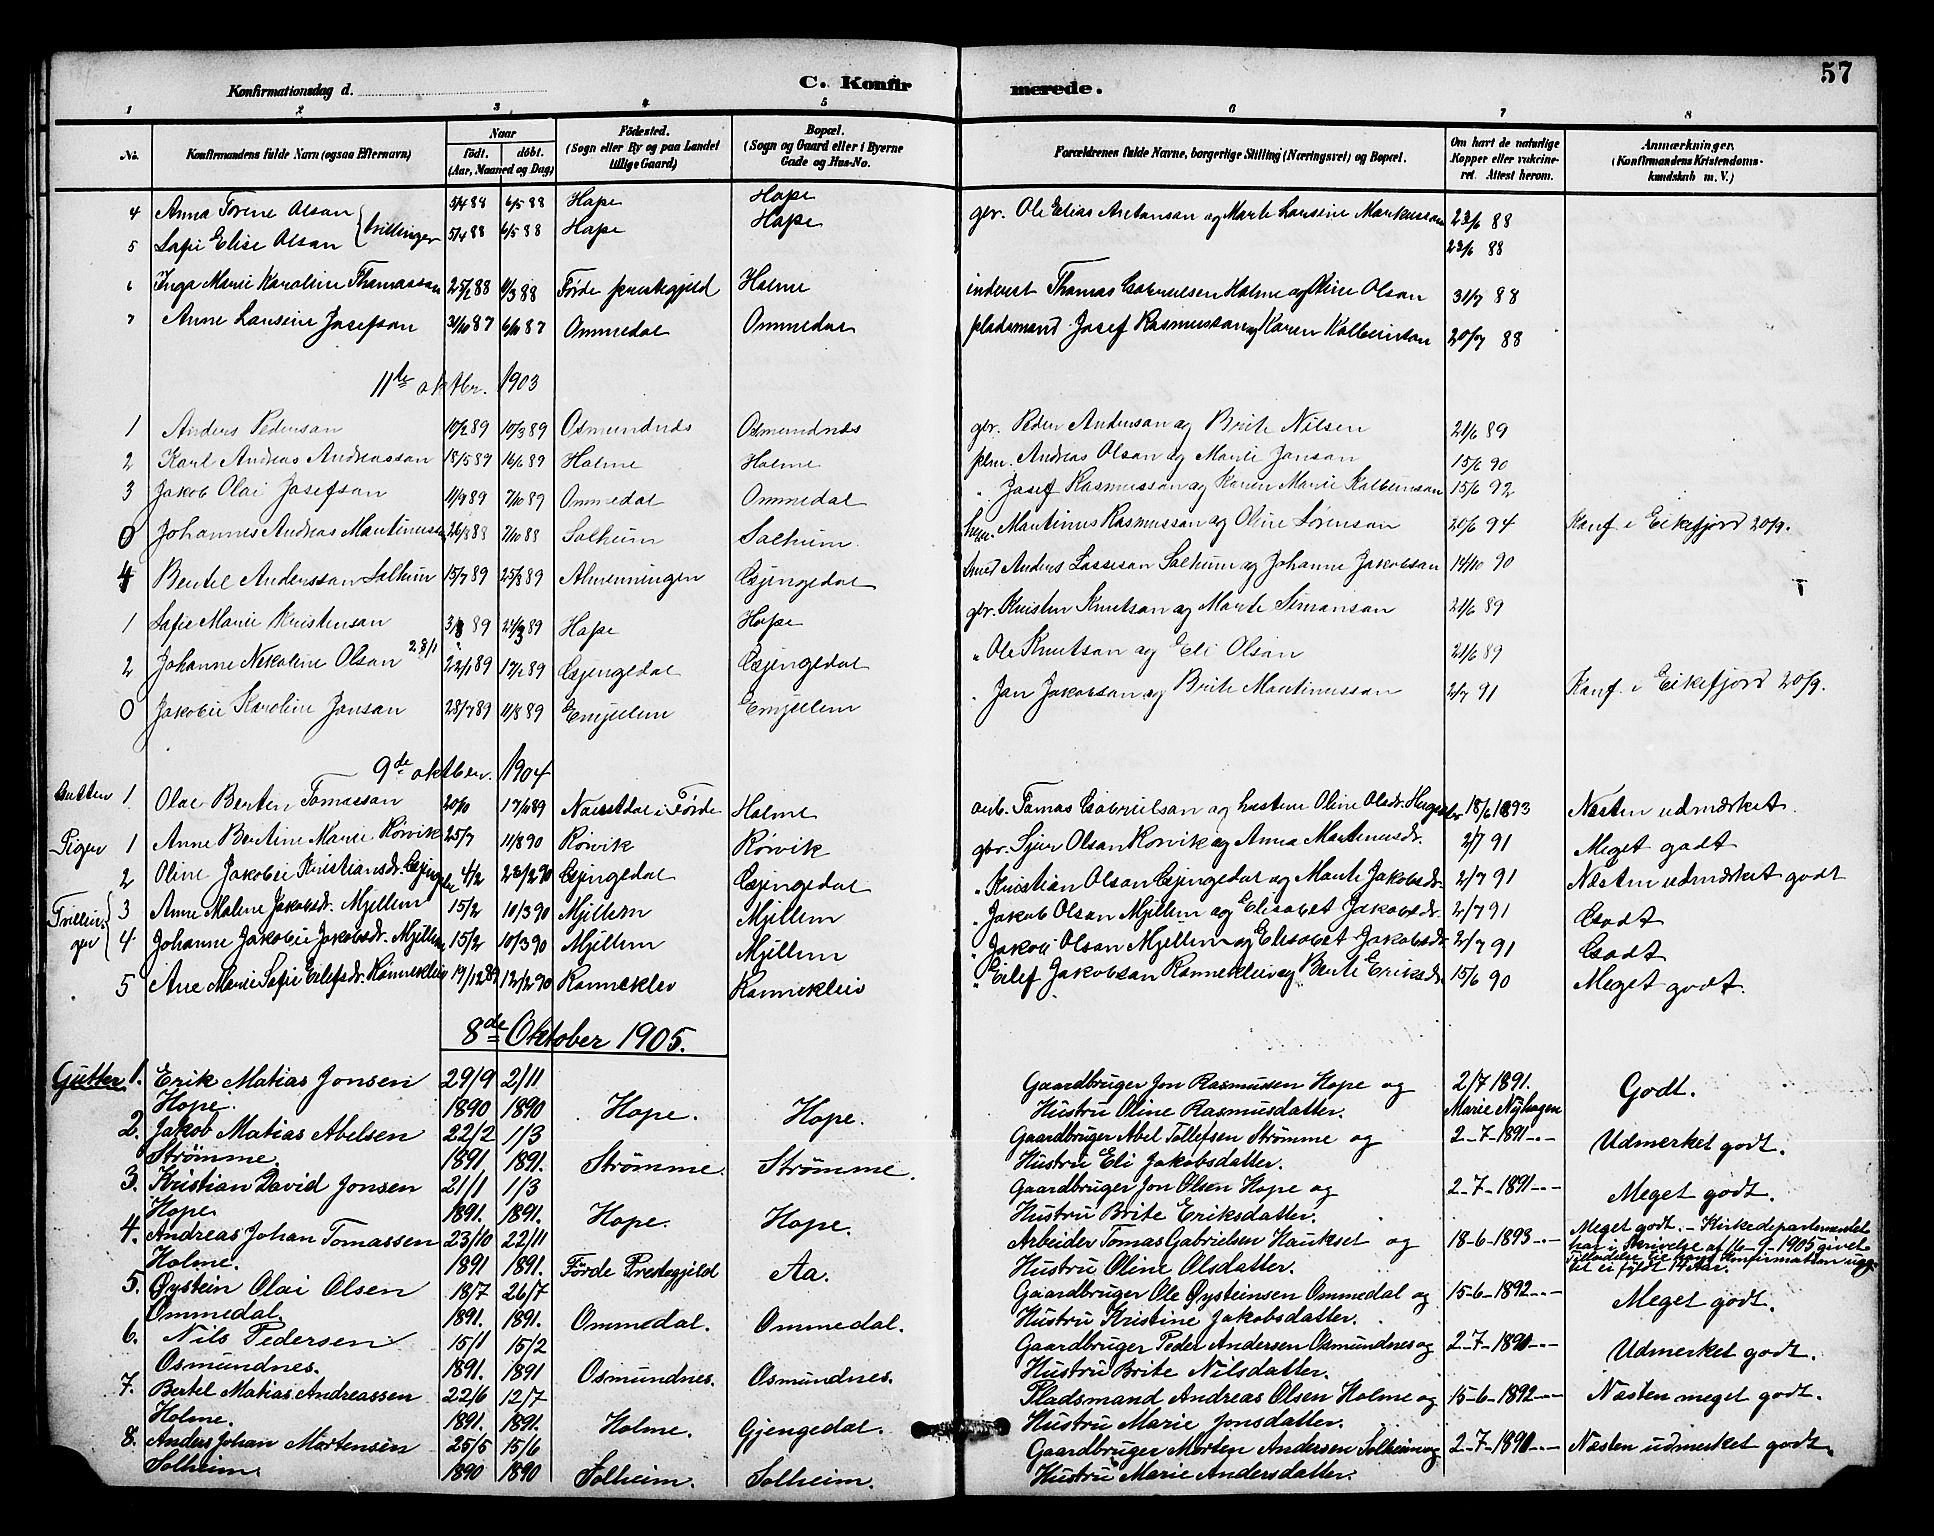 57
Konfirmationsdag d.
C. Konfirmerede.
1 2 3 4 5 6 7 8
No. Konfirmandens fulde Navn (ogsaa Efternavn) Naar födt. döbt. (Aar, Maaned og Dag) Födested. (Sogn eller By og paa Landet tillige Gaard) Bopæl. (Sogn og Gaard eller i Byerne Gade og Hus-No. Forældrenes fulde Navne, borgerlige Stilling (Næringsvei) og Bopæl. Om havt de naturlige Kopper eller vakcineret. Attest herom. Anmærkninger. (Konfirmandens Kristendomskundskab m. V.)
4 Anna Torine Olsan 5/4 88 6/5 88 Hope Hope gbr. Ole Elias Antonsan og Marte Lausine Markussan 23/6 88
tvillinger
5 Sofie Elise Olsan 5/4 88 6/5 88 Hope Hope 23/6 88
6 Inga Marie Karoline Thomassan 25/2 88 11/3 88 Førde prestegjeld Holme inderst Thomas Gabrielsen Holme og Oline Olsan 31/7 88
7 Anne Lausine Josefsan 87 87 Ommedal Ommedal pladsmand Josef Rasmussan og Karen Kolbeinsan 20/7 88
11te oktbr. 1903
1 Anders Pedersan 10/2 89 10/3 89 Osmundnes Osmundnes gbr. Peder Andersan og Brite Nilsen 21/6 89
2 Karl Andreas Andreassan 18/5 89 16/6 89 Holme Holme plm. Andreas Olsan og Marie Jonsan 15/6 90
3 Jakob Olai Josefsan 11/9 89 7/10 89 Ommedal Ommedal " Josef Rasmussan og Karen Marie Kolbeinsan 15/6 92
0 Johannes Andreas Martinussen 26/8 88 7/10 88 Solheim Solheim Martinus Rasmussan og Oline Sørensan 20/6 94 Konf. i Eikefjord 20/9.
4 Bertel Anderssan Solheim 15/7 89 25/8 89 Almenningen Gjengedal Smed Anders Lassesan Solheim og Johanne Jakobsan 14/10 90
1 Sofie Marie Kristensan 3/3 89 24/3 89 Hope Hope gbr. Kristen Knutsan og Marte Simonsan 21/6 89
2 Johanne Nikoline Olsan 28/1 22/1 89 17/2 89 Gjengedal Gjengedal " Ole Knutsan og Eli Olsan 21/6 89
0 Jakobie Karoline Jonsan 28/7 89 11/8 89 Emjellem Emjellem " Jon Jakobsan og Brite Martinussan 2/7 91 Konf. i Eikefjord 20/9.
9de oktber. 1904
Gutten 1. Olai Bertin Tomassan 20/10 89 Naustdal i Førde Holme arb. Tomas Gabrielsan og hustru Oline Olsdr. 18/6 1893 Næsten udmærket
Piger 1 Anne Bertine Marie Rørvik 25/7 11/8 90 Rørvik Rørvik gbr. Sjur Olsan Rørvik og Anna Martinusdr. 2/7 91 Meget godt
2 Oline Jakobie Kristiansdr. Gjengedal 4/2 23/2 90 Gjengedal Gjengedal " Kristian Olsan Gjengedal og Marte Jakobsdr. 2/7 91 Næsten udmærket godt
Tvillinger
3 Anne Malene Jakobsdr. Mjellem 15/2 10/3 90 Mjellem Mjellem " Jakob Olsan Mjellem og Elisabet Jakobsdr. 2/7 91 Godt
4. Johanne Jakobie Jakobsdr. Mjellem 15/2 10/3 90 Mjellem Mjellem " Jakob Olsan Mjellem og Elisabet Jakobsdr. 2/7 91 Godt
5 Ane Marie Sofie Eilefsdr. Ramneklev 19/12 89 12/1 90 Ramneklev Ramneklev " Eilef Jakobsan Ramneklev og Berte Eriksdr. 15/6 90 Meget godt.
8de Oktober 1905.
Gutter 1. Erik Matias Jonsen 29/9 2/11 Gaardbruger Jon Rasmussen Hope og 2/7 1891. Godt.
Hope. 1890 1890 Hope. Hope. Hustru Oline Rasmusdatter. Marie Nyhagen
2. Jakob Matias Abelsen 22/2 1/3 Gaardbruger Abel Tollefsen Strømme og 2-7-1891-"- Udmerket godt.
Strømme. 1891 1891. Strømme. Strømme. Hustru Eli Jakobsdatter.
3. Kristian David Jonsen 21/1 1/3 Gaardbruger Jon Olsen Hope og 2-7-1891-"- Meget godt.
Hope. 1891. 1891. Hope. Hope. Hustru Brite Eriksdatter.
4. Andreas Johan Tomassen 23/10 22/11 Arbeider Tomas Gabrielsen Haukset og 18-6-1893-"- Meget godt. - Kirkedepartementet har i Skrivelse af 16-9-1905 givet Tilladelse til hans Konfirmation
Holme. 1891 1891. Førde Prestegjeld Aa. Hustru Oline Olsdatter.
5. Øystein Olai Olsen 18/7 26/7 Gaardbruger Ole Øysteinsen Ommedal og 15-6-1892-"- Meget godt.
Ommedal. 1891. 1891. Ommedal. Ommedal. Hustru Kristine Jakobsdatter.
6. Nils Pedersen 15/1 15/2 Gaardbruger Peder Andersen Osmundnes og 2-7-1891-"- Udmerket godt.
Osmundnes. 1891. 1891 Osmundnes. Osmundnes. Hustru Brite Nilsdatter.
7. Bertel Matias Andreassen 22/6 12/7 Pladsmand Andreas Olsen Holme og 15-6-1892-"- Næsten meget godt.
Holme. 1891. 1891. Holme. Gjengedal. Hustru Marie Jonsdatter.
8. Anders Johan Mortensen 25/5 15/6 Gaardbruger Morten Andersen Solheim og 2-7-1891-"- Næsten udmerket godt.
Solheim. 1890 1890 Solheim. Solheim. Hustru Marie Andersdatter.